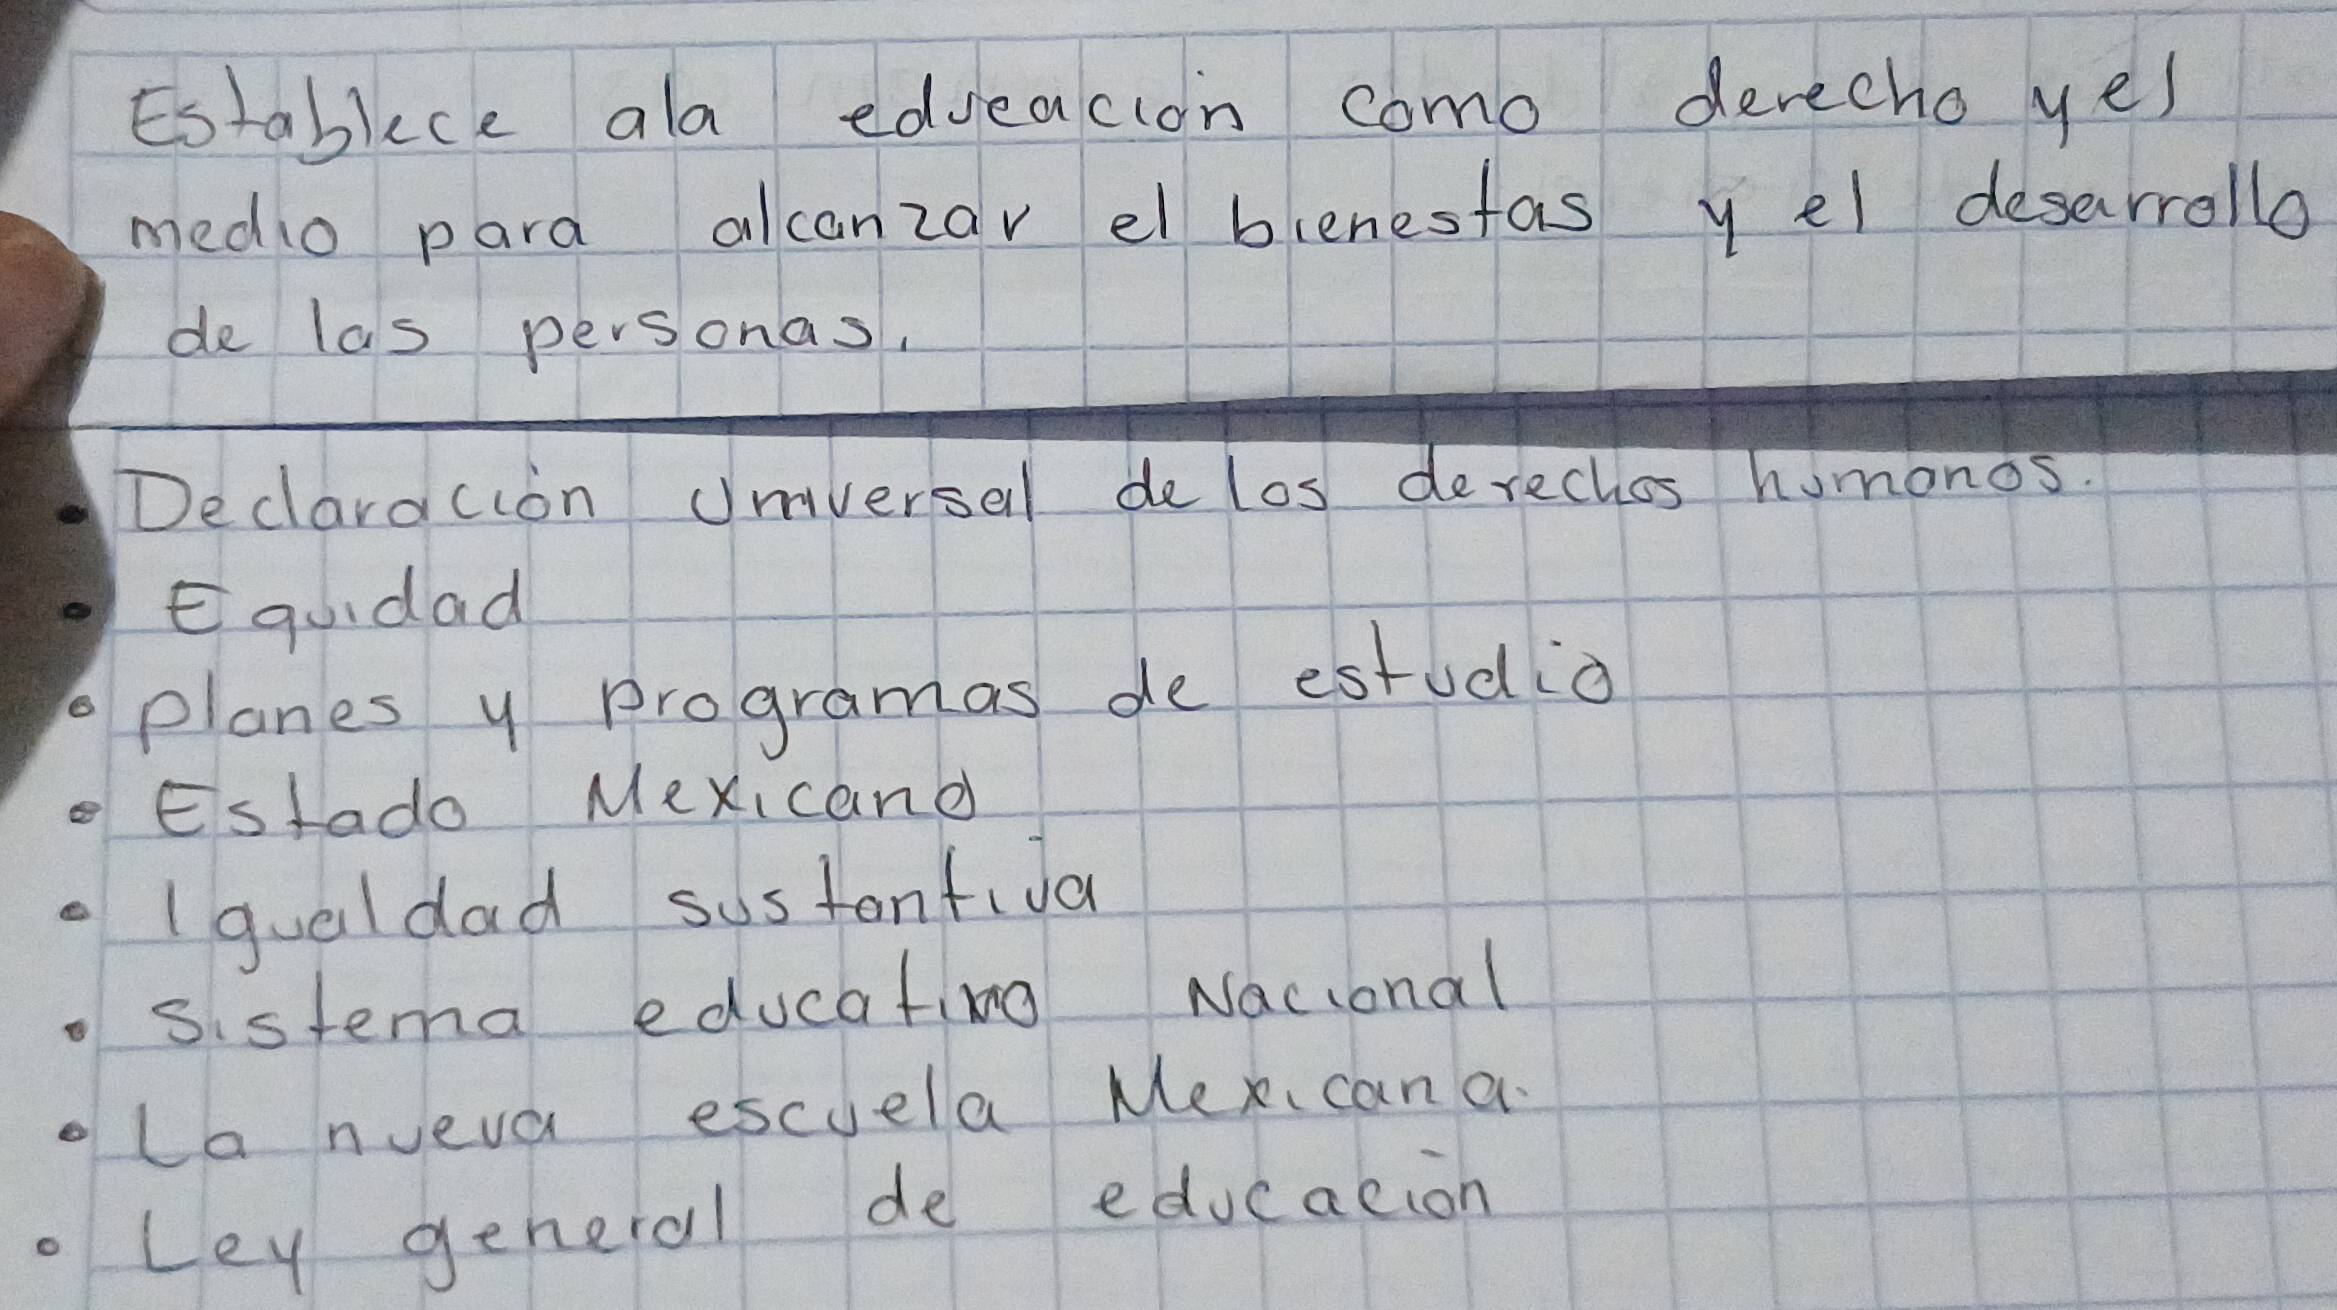 Establece ala edueación como derecho y el
medio para alcanzar el bienestas y el desarrollo
de las personas.
• Declaración Universal de los derechos humanos.
• Equidad
• planes y programas de estudio
• Estado Mexicano
• Igualdad sustantiva
• Sistema educativo Nacional
• La nueva escuela Mexicana.
• Ley general de educación